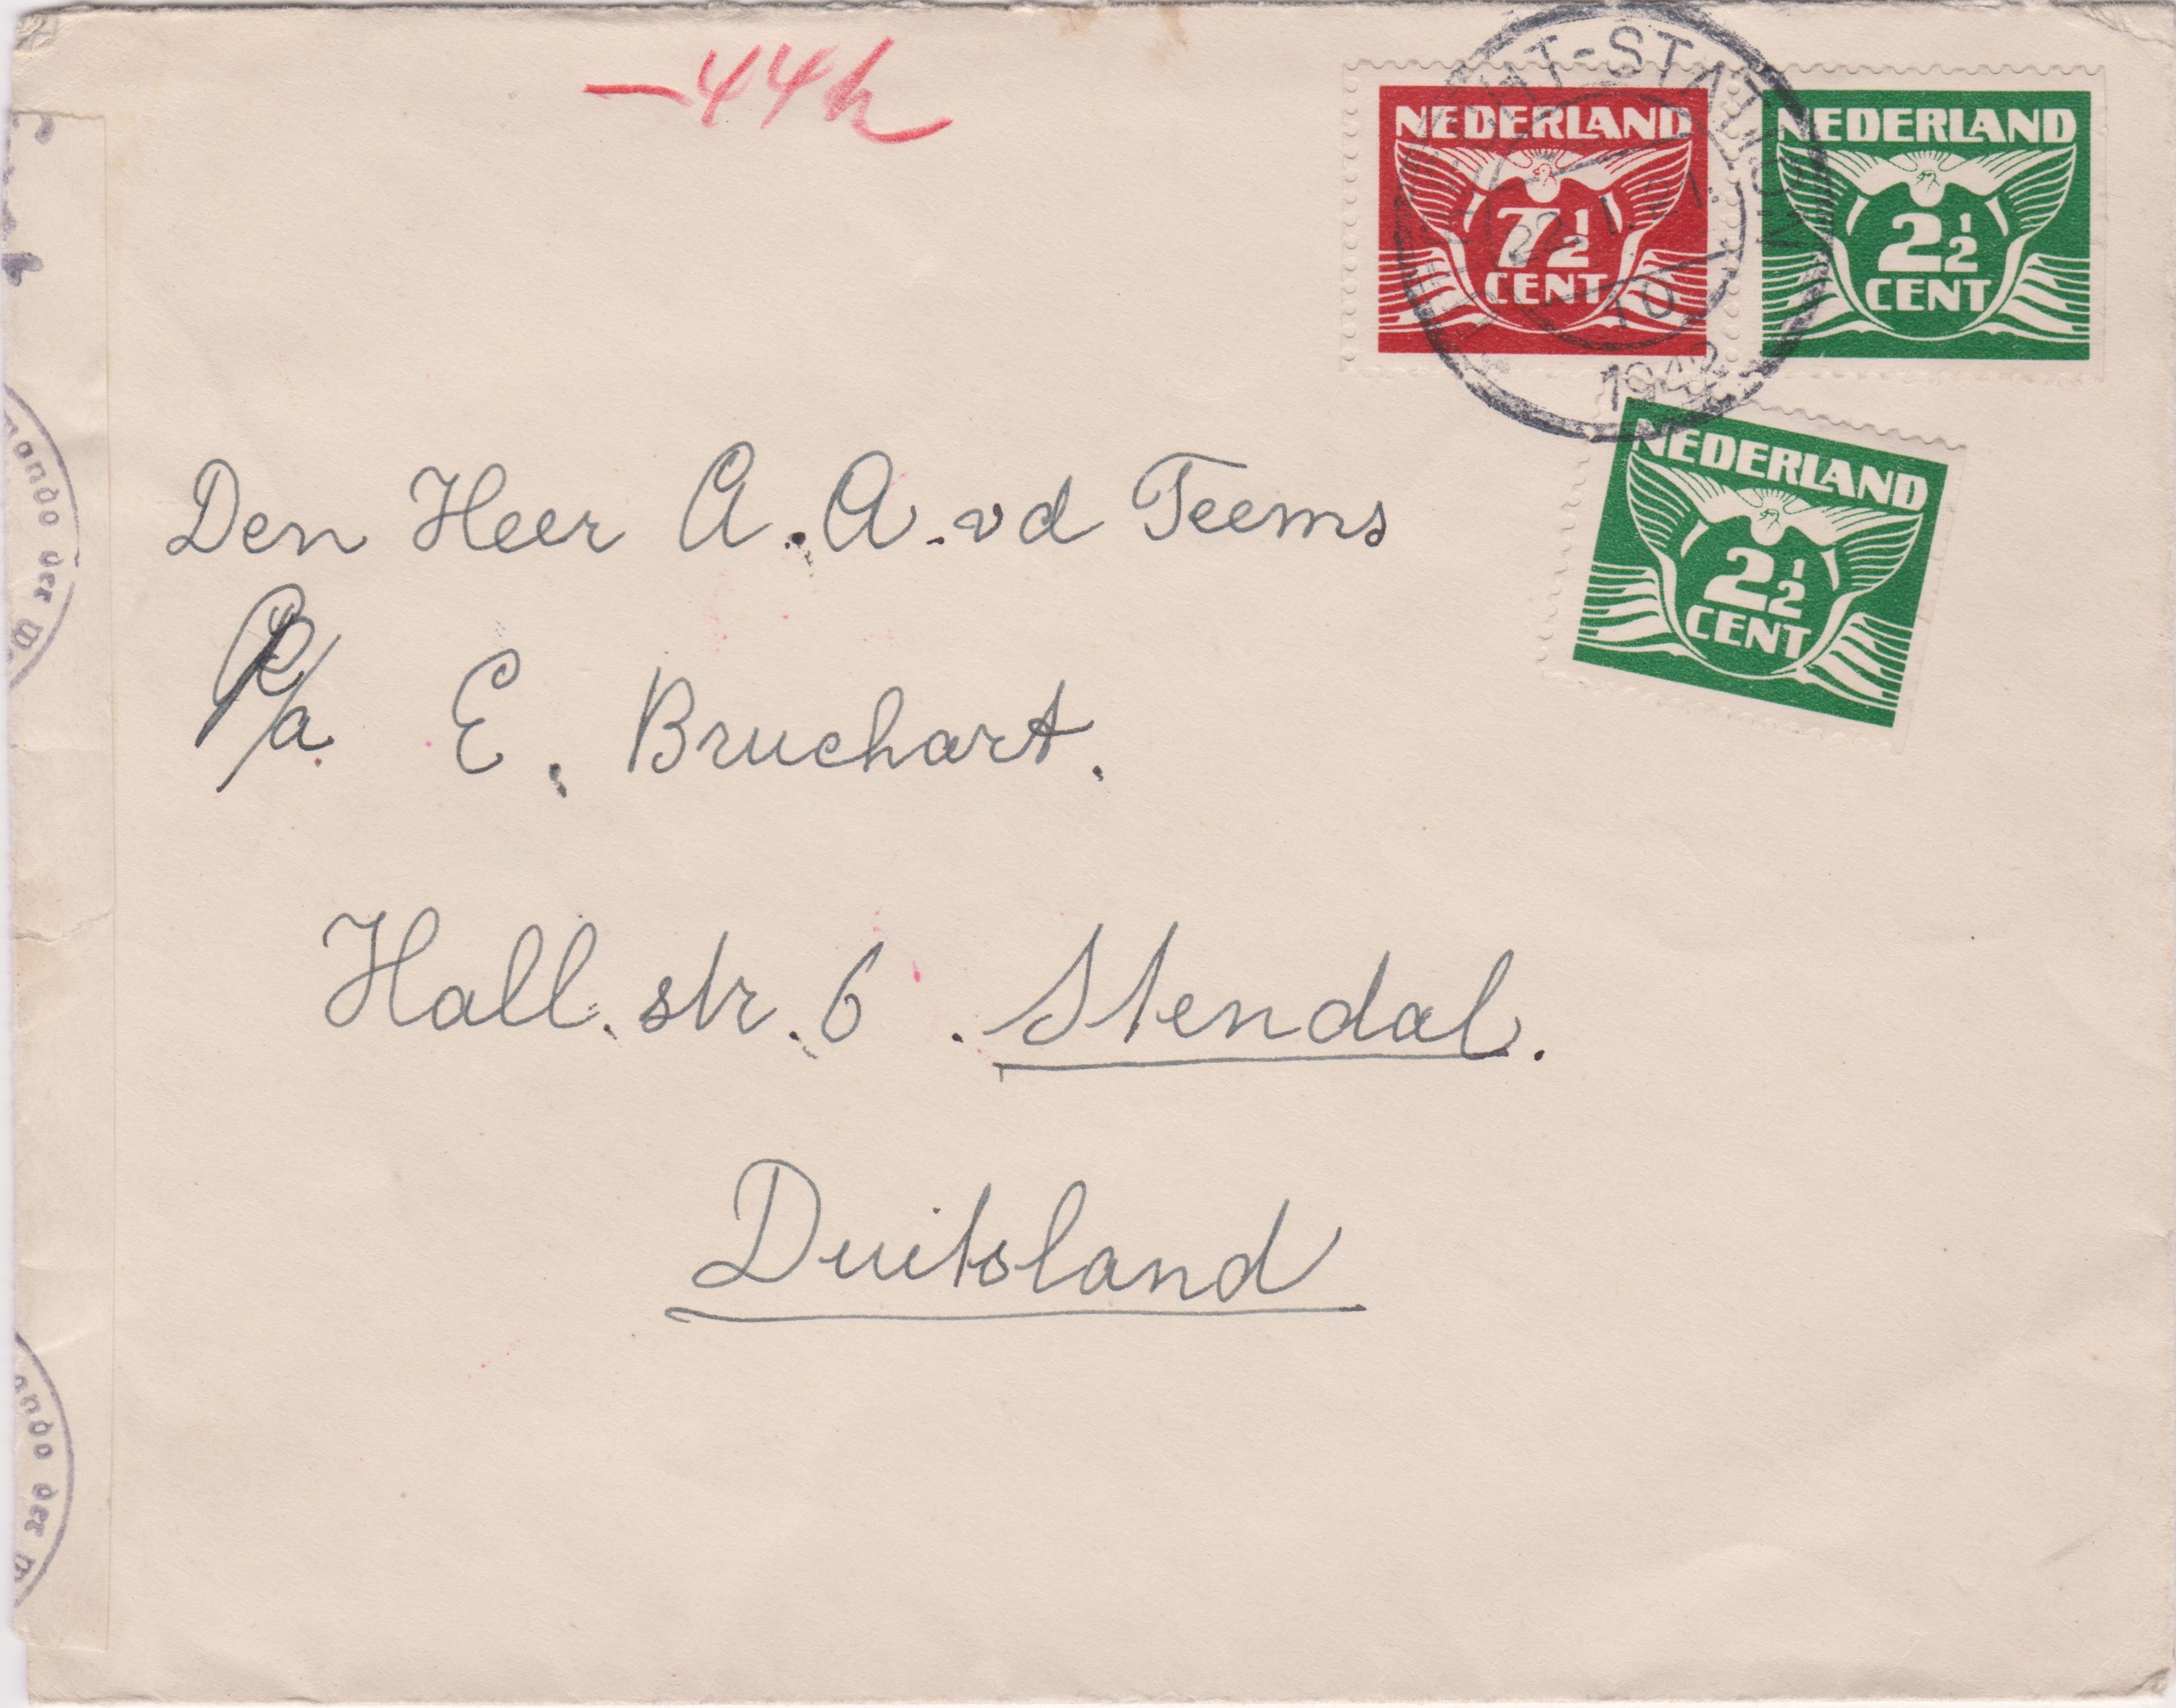 -44h
NEDERLAND
7½
CENT
NEDERLAND
2½
CENT
10
1942
NEDERLAND
2½
CENT
Den Heer A. A. vd Teems
P/a. E. Bruchart.
Hall. str. 6. Stendal.
Duitsland
ando der
ando der